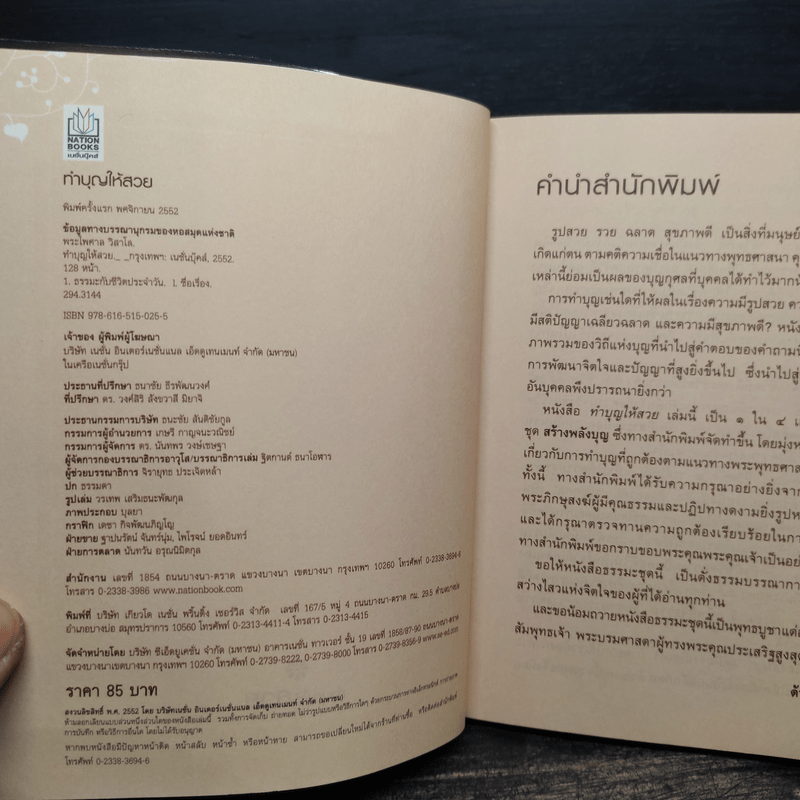 NATION
BOOKS
เนชั่นบุ๊คส์
ทำบุญให้สวย
พิมพ์ครั้งแรก พฤศจิกายน 2552
ข้อมูลทางบรรณานุกรมของหอสมุดแห่งชาติ
พระไพศาล วิสาโล.
ทำบุญให้สวย._ _กรุงเทพฯ: เนชั่นบุ๊คส์, 2552.
128 หน้า.
1. ธรรมะกับชีวิตประจำวัน. I. ชื่อเรื่อง.
294.3144
ISBN 978-616-515-025-5
เจ้าของ ผู้พิมพ์ผู้โฆษณา
บริษัท เนชั่น อินเตอร์เนชั่นแนล เอ็ดดูเทนเมนท์ จำกัด (มหาชน)
ในเครือเนชั่นกรุ๊ป
ประธานที่ปรึกษา ธนาชัย ธีรพัฒนวงศ์
ที่ปรึกษา ดร. วงศ์สิริ สังขวาสี มิยาจิ
ประธานกรรมการบริษัท ธนะชัย สันติชัยกูล
กรรมการผู้อำนวยการ เกษรี กาญจนะวณิชย์
กรรมการผู้จัดการ ดร. นันทพร วงษ์เชษฐา
ผู้จัดการกองบรรณาธิการอาวุโส/บรรณาธิการเล่ม ฐิตกานต์ ธนาโอฬาร
ผู้ช่วยบรรณาธิการ จิรายุทธ ประเจิดหล้า
ปก ธรรมดา
รูปเล่ม วรเทพ เสริมธนะพัฒกุล
ภาพประกอบ บุลยา
กราฟิก เดชา กิจพัฒนภิญโญ
ฝ่ายขาย ฐาปนรัตน์ จันทร์นุ่ม, ไพโรจน์ ยอดอินทร์
ฝ่ายการตลาด นันทวัน อรุณนิมิตกุล
สำนักงาน เลขที่ 1854 ถนนบางนา-ตราด แขวงบางนา เขตบางนา กรุงเทพฯ 10260 โทรศัพท์ 0-2338-3694-6
โทรสาร 0-2338-3986 www.nationbook.com
พิมพ์ที่ บริษัท เกียวโด เนชั่น พริ้นติ้ง เซอร์วิส จำกัด เลขที่ 167/5 หมู่ 4 ถนนบางนา-ตราด กม. 29.5 ตำบลบางบ่อ
อำเภอบางบ่อ สมุทรปราการ 10560 โทรศัพท์ 0-2313-4411-4 โทรสาร 0-2313-4415
จัดจำหน่ายโดย บริษัท ซีเอ็ดยูเคชั่น จำกัด (มหาชน) อาคารเนชั่น ทาวเวอร์ ชั้น 19 เลขที่ 1858/87-90 ถนนบางนา-ตราด
แขวงบางนา เขตบางนา กรุงเทพฯ 10260 โทรศัพท์ 0-2739-8222, 0-2739-8000 โทรสาร 0-2739-8356-9 www.se-ed.com
ราคา 85 บาท
สงวนลิขสิทธิ์ พ.ศ. 2552 โดย บริษัทเนชั่น อินเตอร์เนชั่นแนล เอ็ดดูเทนเมนท์ จำกัด (มหาชน)
ห้ามลอกเลียนแบบส่วนหนึ่งส่วนใดของหนังสือเล่มนี้ รวมทั้งการจัดเก็บ ถ่ายทอด ไม่ว่ารูปแบบหรือวิธีการใดๆ ด้วยกระบวนการทางอิเล็กทรอนิกส์ การถ่ายภาพ
การบันทึก หรือวิธีการอื่นใด โดยไม่ได้รับอนุญาต
หากพบหนังสือมีปัญหาหน้าติด หน้าสลับ หน้าซ้ำ หรือหน้าหาย สามารถขอเปลี่ยนใหม่ได้จากร้านที่ท่านซื้อ หรือติดต่อสำนักพิมพ์
โทรศัพท์ 0-2338-3694-6
คำนำสำนักพิมพ์
รูปสวย รวย ฉลาด สุขภาพดี เป็นสิ่งที่มนุษย์
เกิดแก่ตน ตามคติความเชื่อในแนวทางพุทธศาสนา
เหล่านี้ย่อมเป็นผลของบุญกุศลที่บุคคลได้ทำไว้มาก
การทำบุญเช่นใดที่ให้ผลในเรื่องความมีรูปสวย
มีสติปัญญาเฉลียวฉลาด และความมีสุขภาพดี?
ภาพรวมของวิถีแห่งบุญที่นำไปสู่คำตอบของคำถาม
การพัฒนาจิตใจและปัญญาที่สูงยิ่งขึ้นไป ซึ่งนำไปสู่
อันบุคคลพึงปรารถนายิ่งกว่า
หนังสือ ทำบุญให้สวย เล่มนี้ เป็น ๑ ใน ๔
ชุด สร้างพลังบุญ ซึ่งทางสำนักพิมพ์จัดทำขึ้น โดย
เกี่ยวกับการทำบุญที่ถูกต้องตามแนวทางพระพุทธ
ทั้งนี้ ทางสำนักพิมพ์ได้รับความกรุณาอย่างยิ่งจาก
พระภิกษุสงฆ์ผู้มีคุณธรรมและปฏิปทางดงามยิ่งรูป
และได้กรุณาตรวจทานความถูกต้องเรียบร้อยใน
ทางสำนักพิมพ์ขอกราบขอบพระคุณพระคุณเจ้าเป็น
ขอให้หนังสือธรรมะชุดนี้ เป็นดั่งธรรมบรรณาการ
สว่างไสวแห่งจิตใจของผู้ที่ได้อ่านทุกท่าน
และขอน้อมถวายหนังสือธรรมะชุดนี้เป็นพุทธบูชาแด่
สัมพุทธเจ้า พระบรมศาสดาผู้ทรงพระคุณประเสริฐสูงสุด